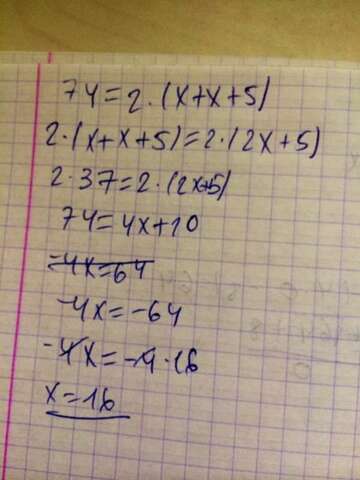 74=2·(x+x+5)
2·(x+x+5)=2·(2x+5)
2·37=2·(2x+5)
74=4x+10
-4x=64
-4x=-64
-4x=-4·16
x=16